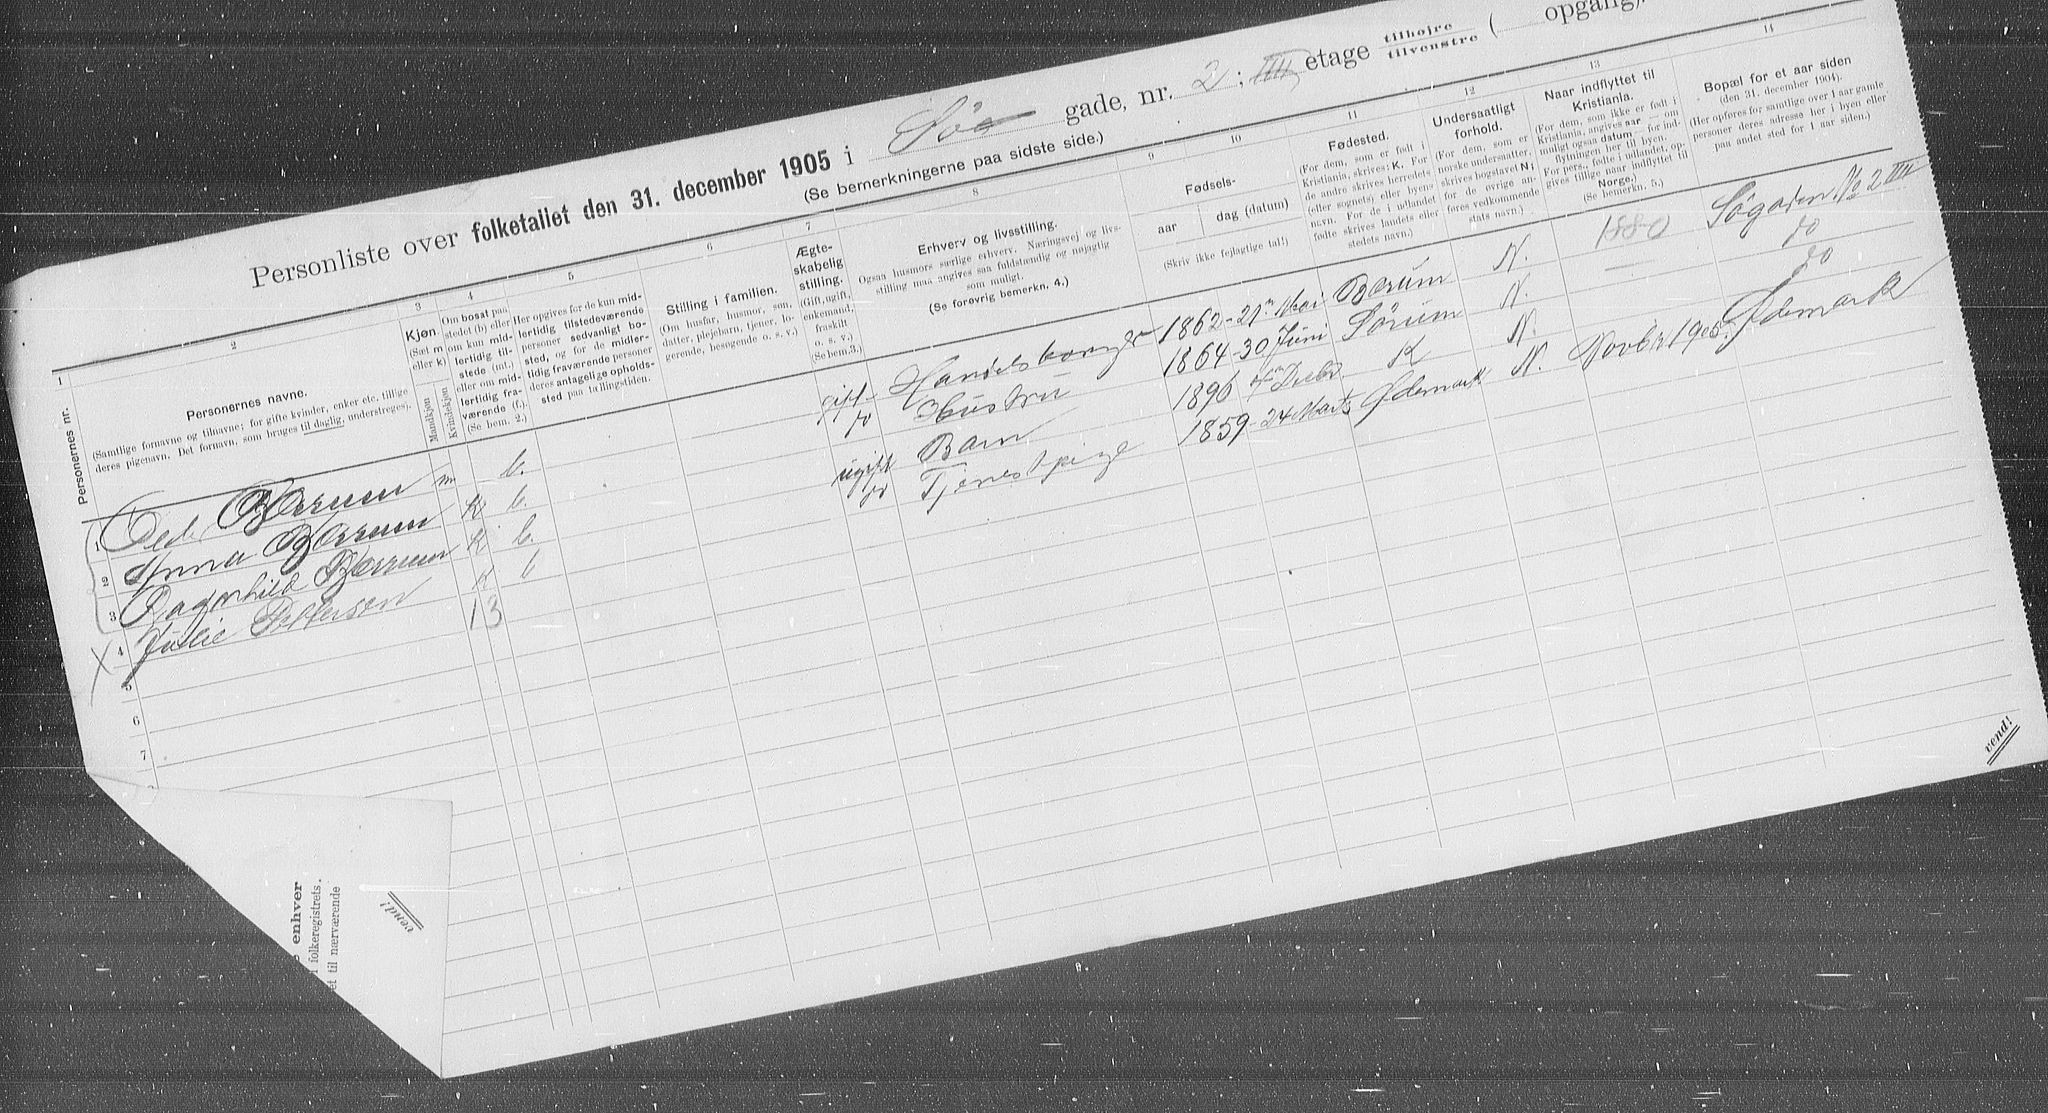 Personliste over folketallet den 31. december 1905 i Søe gade, nr. 2; IIII etage tilhøjre tilvenstre ( opgang).
(Se bemerkningerne paa sidste side.)
1 2 3 4 5 6 7 8 9 10 11 12 13 14
Personernes nr.
Personernes navne.
(Samtlige fornavne og tilnavne; for gifte kvinder, enker etc. tillige
deres pigenavn. Det fornavn, som bruges til daglig, understreges).
Kjøn
(Sæt m
eller k)
Mandkjøn
Kvindekjøn
Om bosat paa
stedet (b) eller
om kun mid-
lertidig til-
stede (mt.)
eller om mid-
lertidig fra-
værende (f.).
(Se bem. 2.)
Her opgives for de kun mid-
lertidig tilstedeværende
personer sedvanlig bo-
sted, og for de midler-
tidig fraværende personer
deres antagelige opholds-
sted paa tællingstiden.
Stilling i familien.
(Om husfar, husmor, søn,
datter, plejebarn, tjener, lo-
gerende, besøgende o. s. v.)
Ægte-
skabelig
stilling.
(Gift, ugift,
enkemand,
fraskilt
o. s. v.)
(Se bem.3.)
Erhverv og livsstilling.
Ogsaa husmors særlige erhverv. Næringsvej og livs-
stilling maa angives saa fuldstændig og nøjagtig
som muligt.
(Se forøvrig bemerkn. 4.)
Fødsels-
aar dag (datum)
(Skriv ikke fejlagtige tal!)
Fødested.
(For dem, som er født i
Kristiania, skrives: K. For
de andre skrives herredets
(eller sognets) eller byens
navn. For de i udlandet
fødte skrives landets eller
stedets navn.)
Undersaatligt
forhold.
(For dem, som er
norske undersaatter,
skrives bogstavet N;
for de øvrige an-
føres vedkommende
stats navn.)
Naar indflyttet til
Kristiania.
(For dem, som ikke er født i
Kristiania, angives aar — om
muligt ogsaa datum — for ind-
flytningen her til byen.
For pers., fødte i udlandet, op-
gives tillige naar indflyttet til
Norge.)
(Se bemerkn. 5.)
Bopæl for et aar siden
(den 31. december 1904).
(Her opføres for samtlige over 1 aar gamle
personer deres adresse her i byen eller
paa andet sted for 1 aar siden.)
1 Ole Bærum m b. gift Handelsborger 1862 - 21de Mai Bærum N. 1880 Søgaden No 2 IIII
2 Anna Bærum K b. do Hustru 1864 - 30 Juni Sørum N. — do
3 Ragnhild Bærum K b. ugift Barn 1896 Decbr. K N. do
X 4 Julie Pettersen K b do Tjenestpige 1859 - 24 Marts Ødemark N. Novbr 1905. Ødemark
5 13
6
7
vend!
enhver
i folkeregistrets.
et til nærværende
vend!